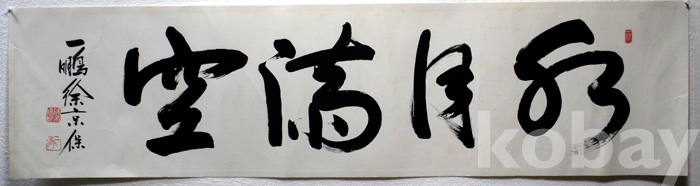 月滿空
一鵬 徐京保
kobay